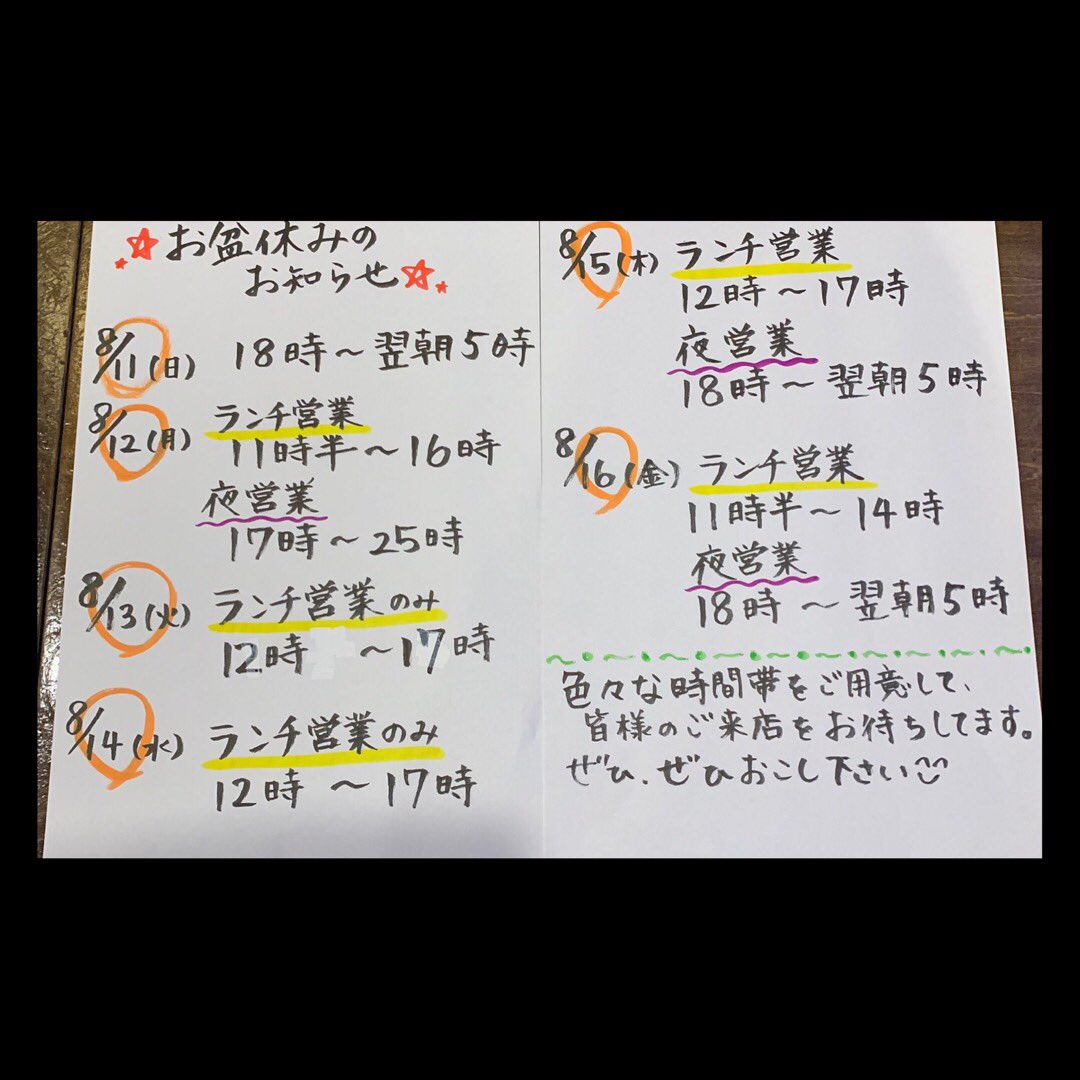 お盆休みの
お知らせ
8/11(日) 18時～翌朝5時
8/12(月) ランチ営業
11時半～16時
夜営業
17時～25時
8/13(火) ランチ営業のみ
12時 ～17時
8/14(水) ランチ営業のみ
12時 ～17時
8/15(木) ランチ営業
12時～17時
夜営業
18時～翌朝5時
8/16(金) ランチ営業
11時半～14時
夜営業
18時 ～翌朝5時
色々な時間帯をご用意して、
皆様のご来店をお待ちしてます。
ぜひ、ぜひおこし下さい